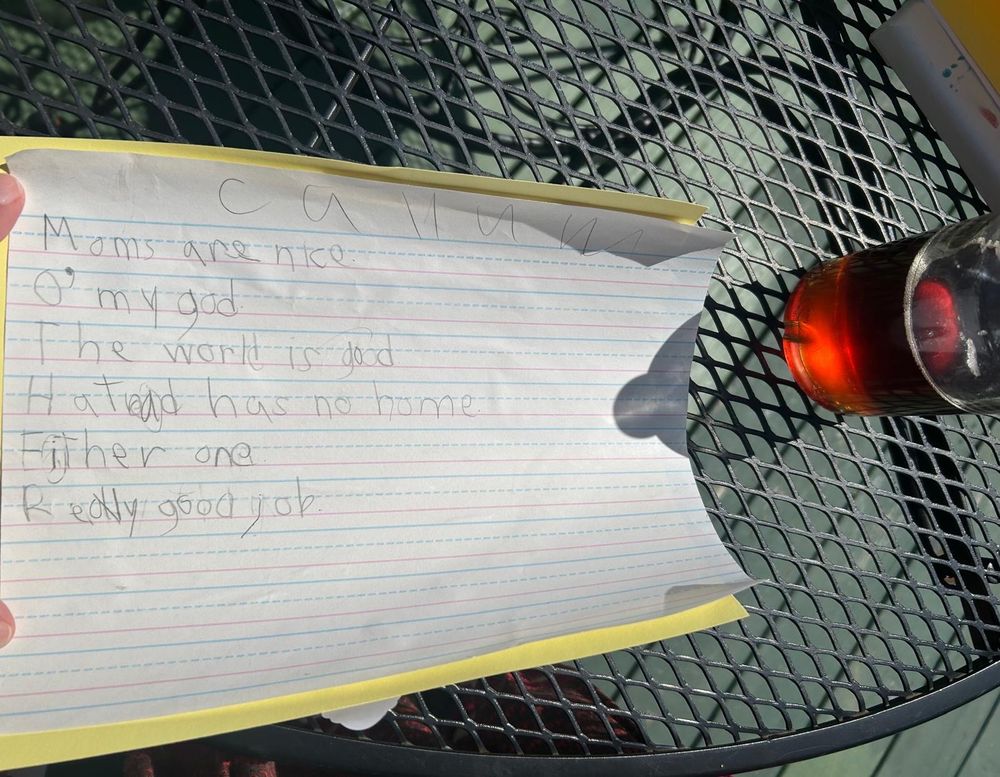 callum
Moms are nice.
O' my god.
The world is good
Hatread has no home.
Either one
Really good job.